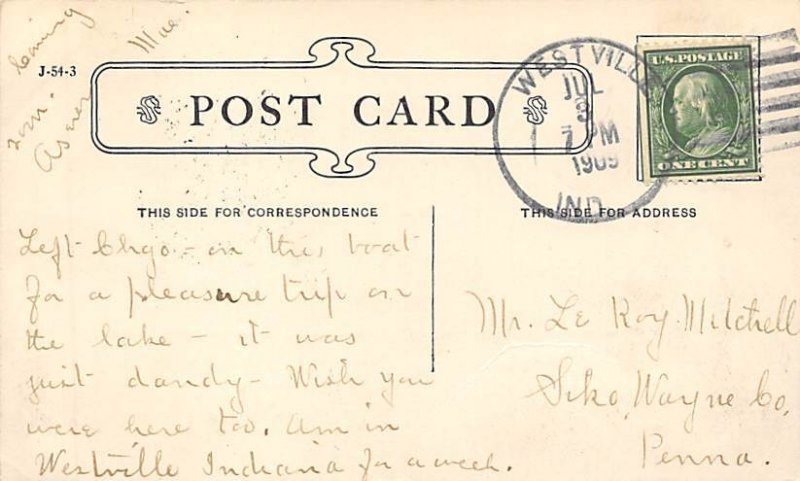 J-54-3
POST CARD
WESTVILLE
JUL
3
7 PM
1909
IND.
U.S. POSTAGE
ONE CENT
THIS SIDE FOR CORRESPONDENCE
THIS SIDE FOR ADDRESS
Left Chgo - on this boat
for a pleasure trip on
the lake - it was
just dandy - Wish you
were here too. Am in
Westville Indiana for a week.
leaving
As ever
Mae.
Mr. Le Roy Mitchell
Siko, Wayne Co,
Penna.